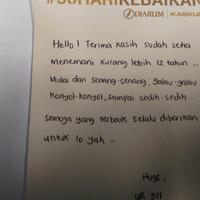 #30HARIKEBAIKAN
DJARUM KASKUS
Hello! Terima kasih sudah setia
menemani kurang lebih 12 tahun..
Mulai dari senang-senang, galau-galau
konyol-konyol, sampai sedih-sedih..
Semoga yang terbaik selalu diberikan
untuk lo yah..
Hugs,